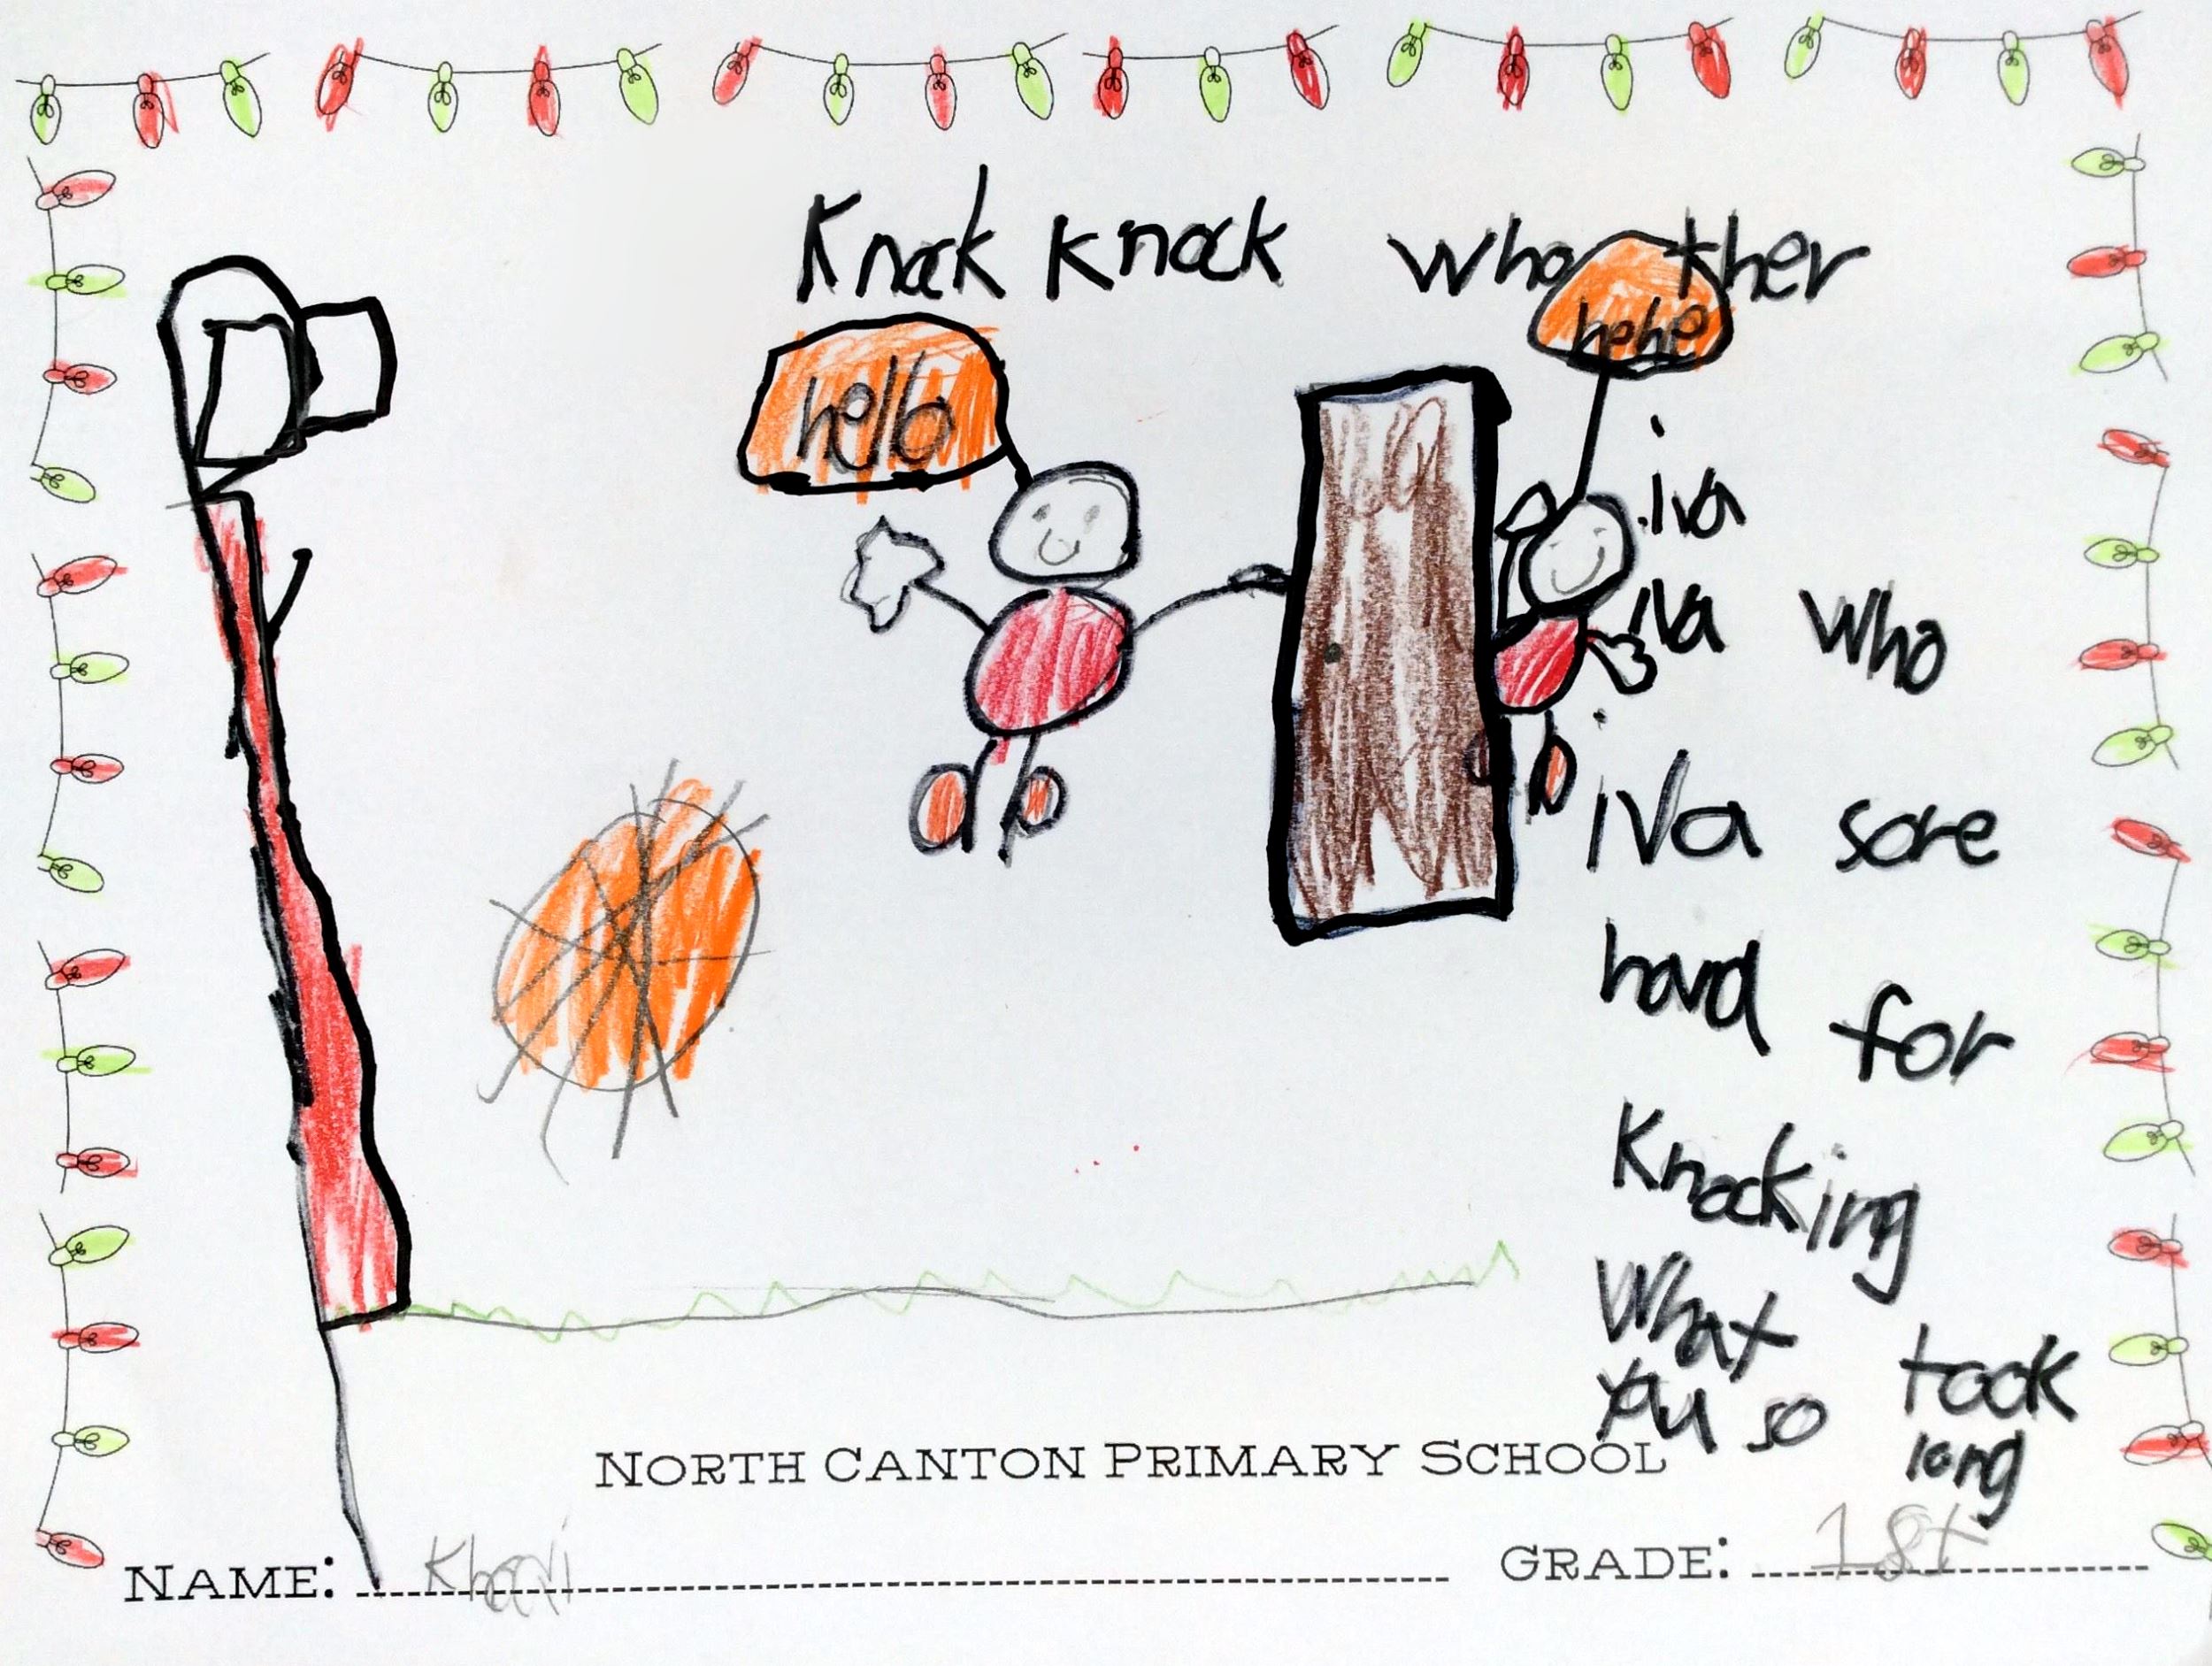 Knock Knock who ther
hello
hehe
iva
iva who
iva sore
hard for
Knocking
What took
you so long
NORTH CANTON PRIMARY SCHOOL
NAME: Khari
GRADE: 1st